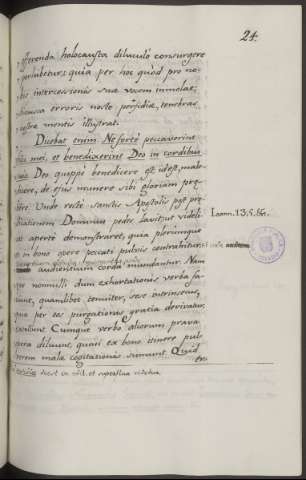 24.
offerenda holocausta diluculo consurgere
perhibetur: quia per hoc quod pro no-
bis intercessionis suæ vocem immolat;
discussa erroris nocte perfidiæ, tenebras
nostræ mentis illustrat.
Dicebat enim: Ne forte peccaverint
filii mei, et benedixerint Deo in cordibus
suis. Deo quippe benedicere est, idest, male-
dicere, de ejus munere sibi gloriam præ-
bere. Unde recte sanctis Apostolis post præ-
dicationem Dominus pedes lavit: ut videli-
cet aperte demonstraret, quia plerumque
et in bono opere peccati pulvis contrahitur;
audientium corda mundantur. Nam
que nonnulli dum exhortationis verba fa-
ciunt, quamlibet tenuiter, sese intrinsecus,
qua per eos purgationis gratia derivatur,
extollunt. Cumque verbo aliorum prava
opera diluunt, quasi ex bono itinere pul-
verem malæ cogitationis sumunt. Quid
Ioann. 13. 5. &c.
deest in edit. et superflua videtur.